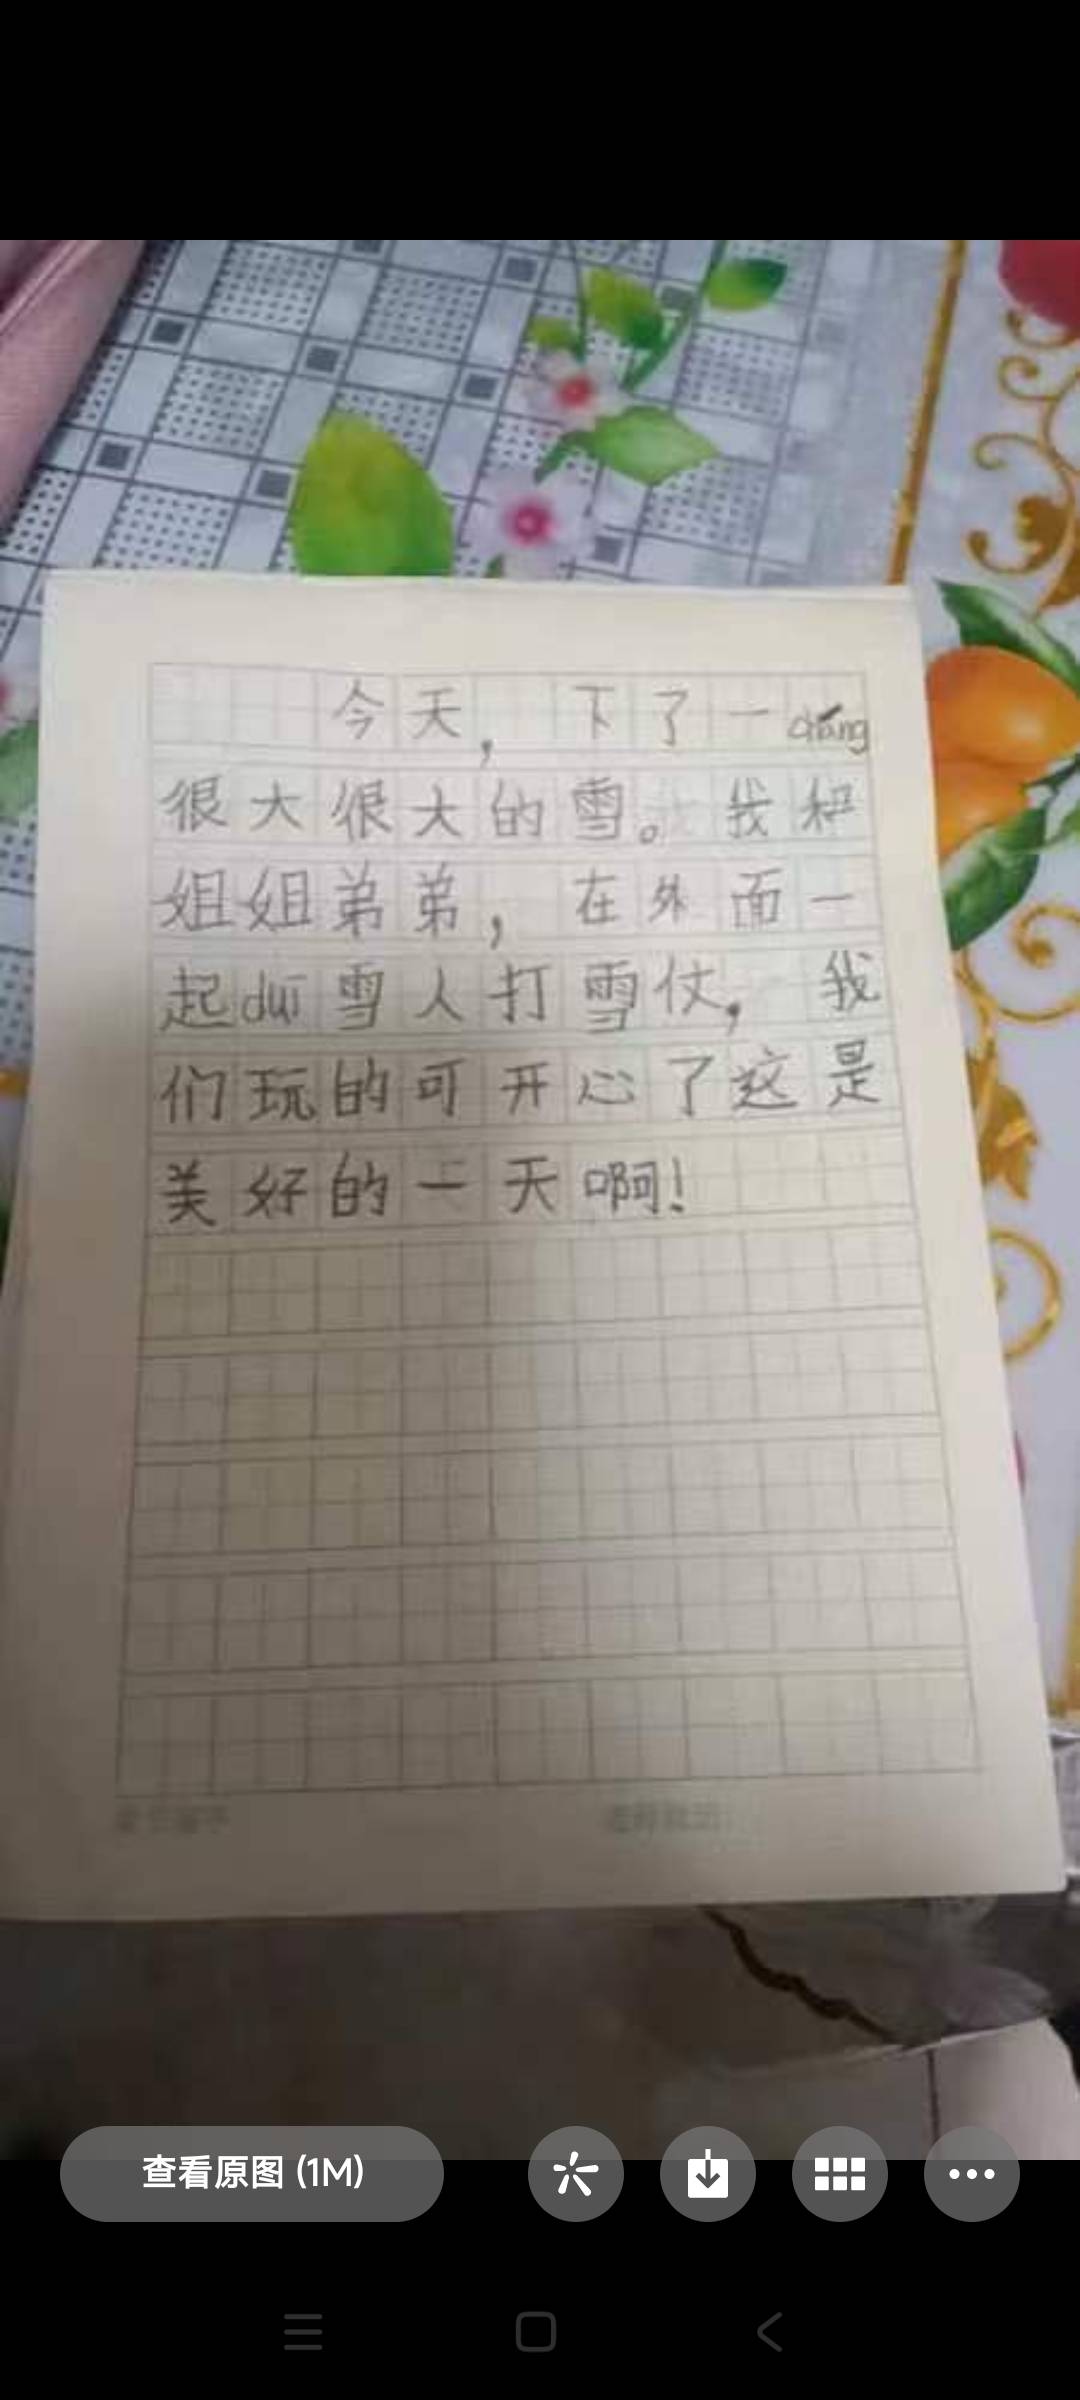 今天，下了一cháng
很大很大的雪。我和
姐姐弟弟，在外面一
起duī雪人打雪仗，我
们玩的可开心了这是
美好的一天啊！
查看原图 (1M)